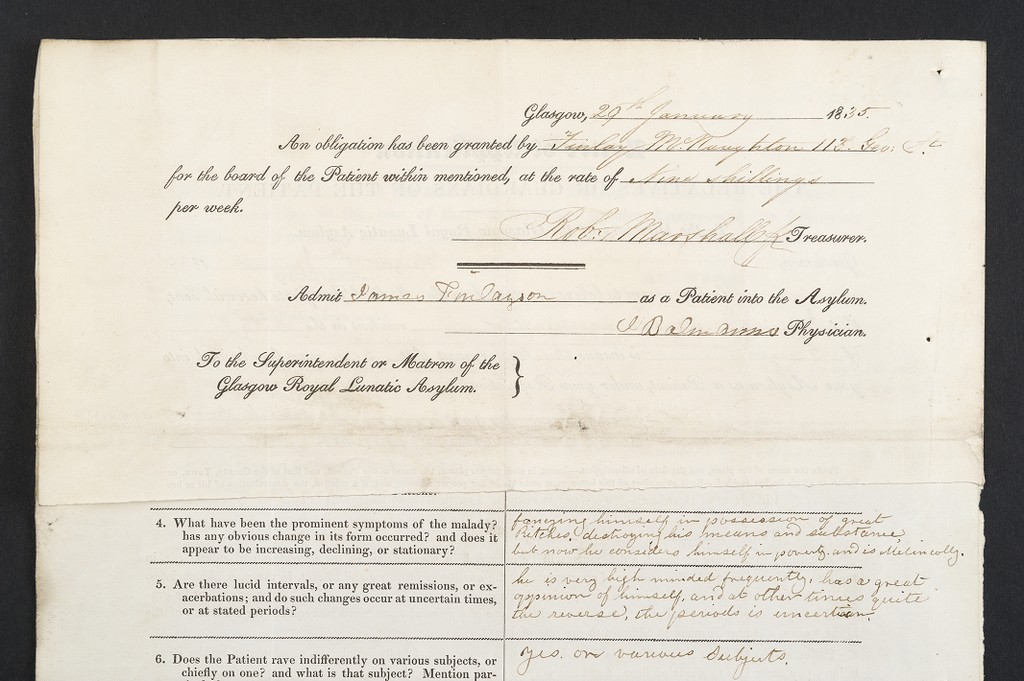 Glasgow, 29th January 1835.
An obligation has been granted by Finlay McNaughton 113 Geo: St
for the board of the Patient within mentioned, at the rate of Nine shillings
per week.
Robt Marshall Treasurer.
Admit James Finlayson as a Patient into the Asylum.
J Balmanno Physician.
To the Superintendent or Matron of the
Glasgow Royal Lunatic Asylum. }
4. What have been the prominent symptoms of the malady?
has any obvious change in its form occurred? and does it
appear to be increasing, declining, or stationary?
fancying himself in possession of great
Ritches, destroying his means and substance,
but now he considers himself in poverty. and is Melincolly.
5. Are there lucid intervals, or any great remissions, or ex-
acerbations; and do such changes occur at uncertain times,
or at stated periods?
he is very high minded frequently, has a great
oppinion of himself, and at other times quite
the reverse, the periods is uncertain.
6. Does the Patient rave indifferently on various subjects, or
chiefly on one? and what is that subject? Mention par-
yes. on various Subjects.